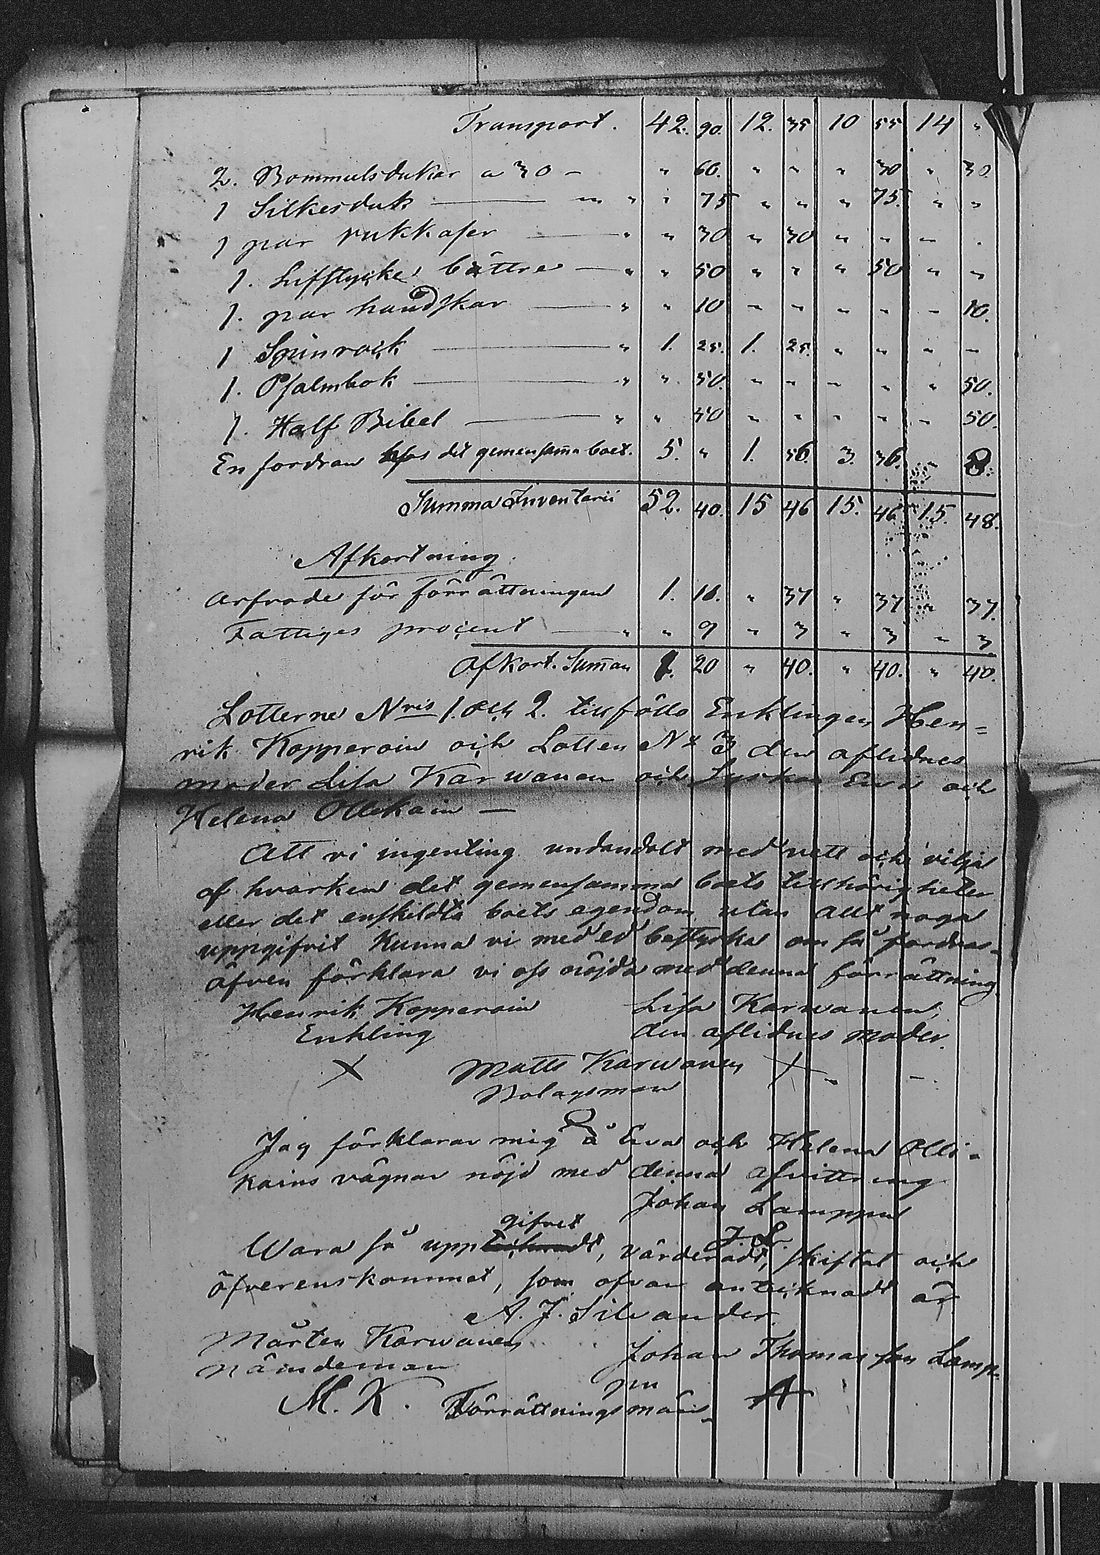 Transport. 42. 90. 12. 35 10 55 14 "
2. Bommulsdukar a 30 — " 60. " " " 30 " 30
1 Silkesduk — " " 75 " " " 75. " "
1 par — " " 30 " 30 " " " "
1. Lifstycke bättre — " " 50 " " " 50 " "
1. par handskar — " " 10 " " " " " 10.
1 Spinrock — " 1. 25. 1. 25. " " " "
1. Psalmbok — " " 50. " " " " " 50.
1. Half Bibel — " " 50 " " " " " 50.
En fordran hos det gemensamma boet. 5. " 1. 56. 3. 36. " 8.
Summa Inventarii 52. 40. 15 46 15. 46 15. 48.
Afkortning.
Arfvode för förrättningen 1. 11. " 37 " 37 " 37.
Fattiges procent — " " 9 " 3 " 3 " 3
Afkort. Summan 1. 20 " 40. " 40. " 40.
Lotterne Nris 1. och 2. tillföllo Enklingen Hen=
rik Kopperoin och Lotten No 3 den aflidnes
moder Lisa Karwanen och Syskon Eva och
Helena Ollikain —
Att vi ingenting undandolt med vett och vilja
af hvarken det gemensamma boets tillhörigheter
eller det enskeldta boets egendom utan allt noga
uppgifvit kunna vi med ed bestyrka om så fordras.
äfven förklara vi oss nöjda med denna förrättning
Henrik Kopperoin Lisa Karwanen,
Enkling den aflidnes moder.
X Matts Karwanen X
Bolagsman
Jag förklarar mig å Eva och Helena Olli=
kains vägnar nöjd med denna afvittring
Johan Lamppu
gifvet J. L.
Wara så upp t, värderadt, skiftat och
öfverenskommet, som ofvan antecknadt är
A. J. Silvander.
Mårten Karwanen Johan Thomasson Lamp=
nämdeman pu
M. K. Förrättningsmän. A